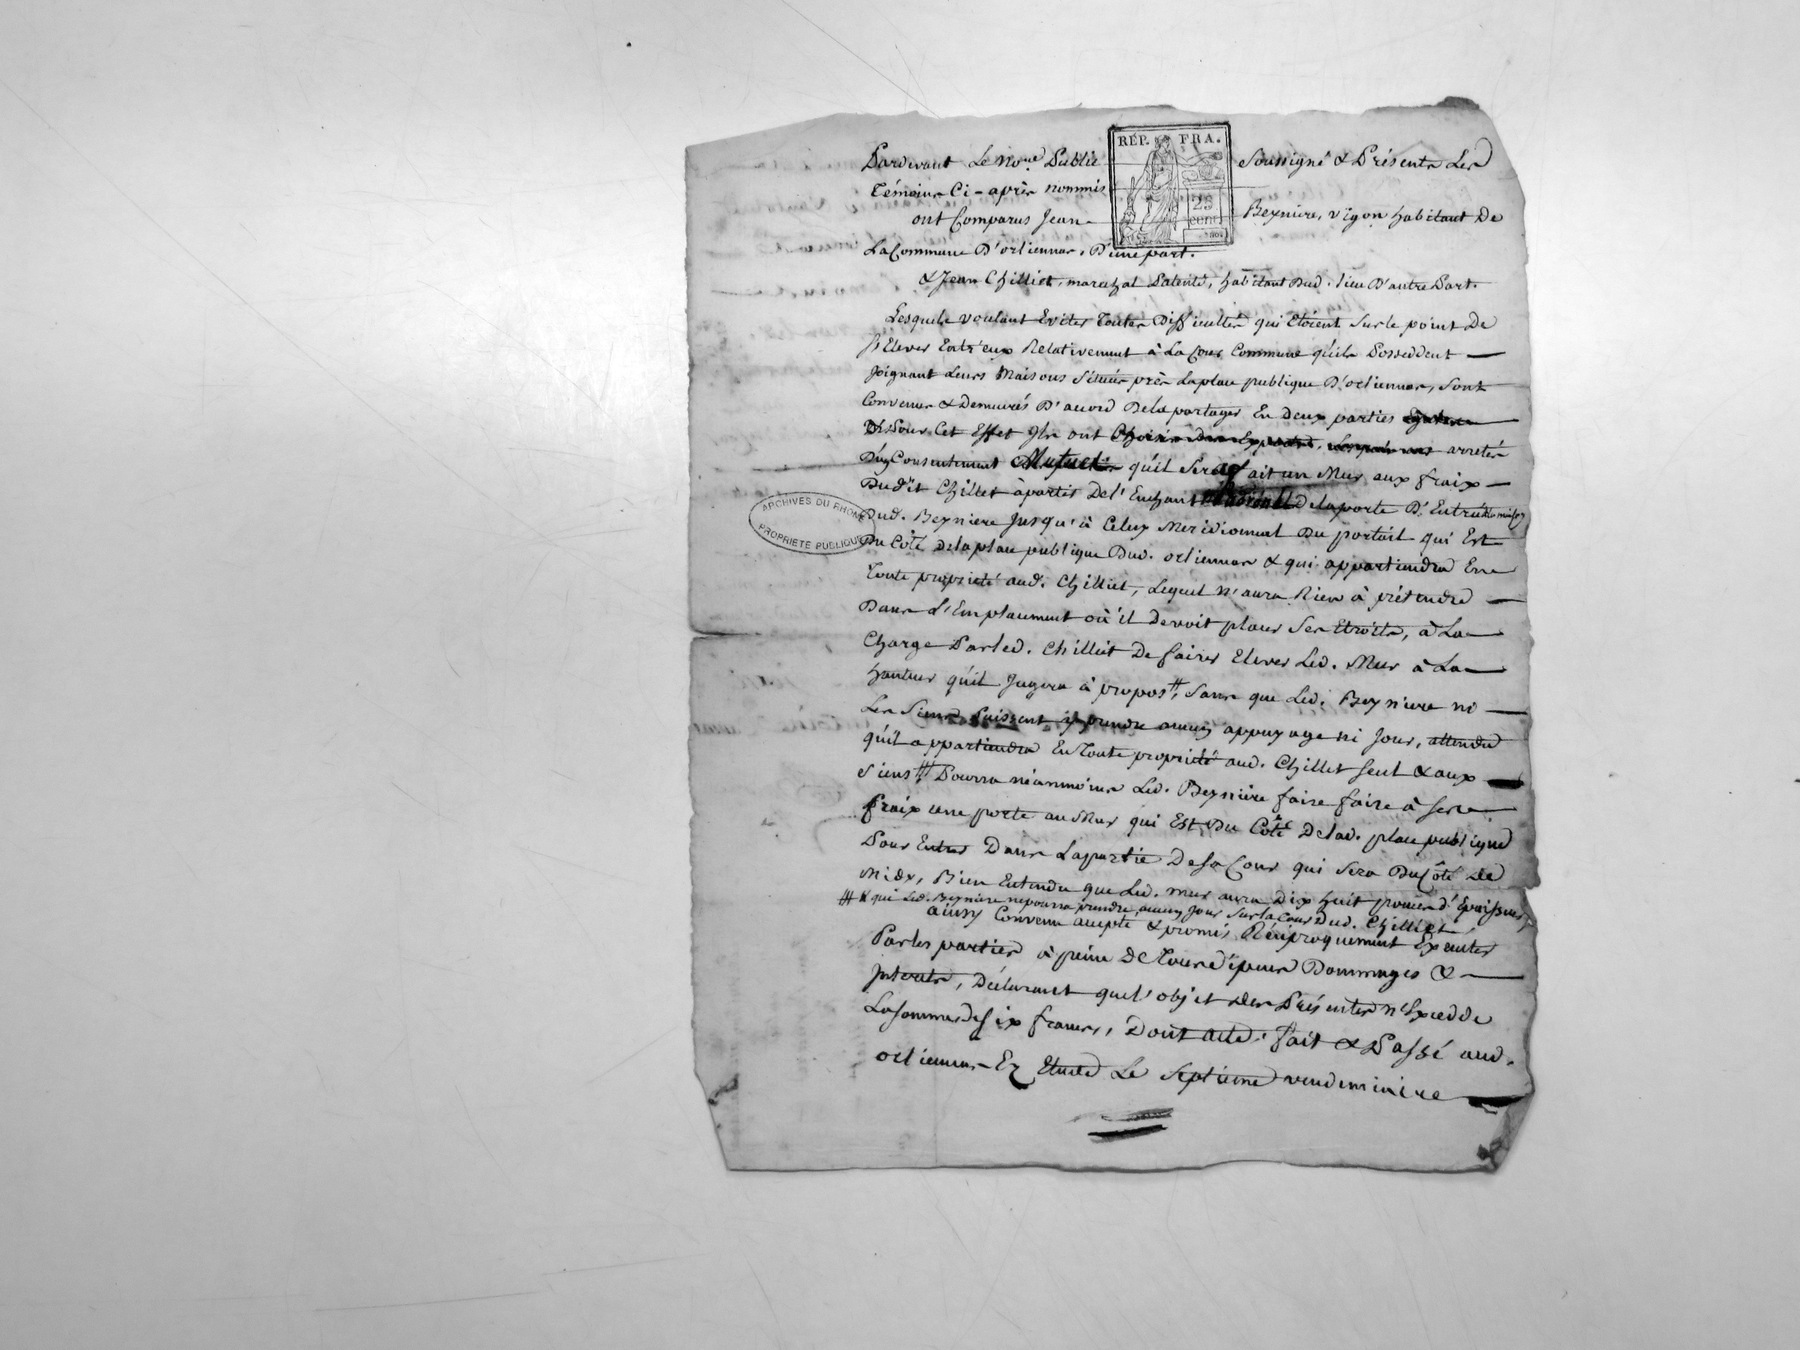 RÉP. FRA.
25
cent.
Pardevant Le no.re Public Soussigné & Présents Les
Témoins Ci-après nommés
ont Comparus Jean Beyniere, vigon habitant De
La Commune D'orliennas, D'une part.
& Jean Chilliet, marechal Patenté, habitant Dud. lieu D'autre Part.
Lesquels voulant Eviter Toutes Difficultés qui Etoient Sur le point De
S'Elever Entr'eux Relativement à La Cour Commune qu'ils Posseddent
Joignant Leurs Maisons Situés près La place publique D'orliennas, Sont
Convenus & Demeurés D'accord De la partager En Deux parties
Pour Cet Effet Ils ont arretés
D'un Consentement Mutuel qu'il Sera fait un Mur aux fraix
Dudit Chillet à partir De l' De la porte D'Entrée
ARCHIVES DU RHONE
PROPRIETE PUBLIQUE
Dud. Beyniere Jusqu'à Celuy Meridionnal Du portail qui Est
Du Côté De la place publique Dud. orliennas & qui appartiendra En
Toute propriété aud. Chilliet, Lequel n'aura Rien à prétendre
Dans L'Emplacement où il Devoit placer Ses Etroits, à La
Charge Par led. Chilliet De faire Elever Led. Mur à La
hauteur qu'il Jugera à propos #, Sans que Led. Beyniere ni
Les Siens Puissent y prendre aucun appuyage ni Jour, attendu
qu'il appartiendra En Toute propriété aud. Chillet seul & aux
Siens # Pourra néanmoins Led. Beyniére faire faire à ses
fraix une porte au Mur qui Est Du Côté De lad. place publique
Pour Entrer Dans La partie De Sa Cour qui Sera Du Côté de
Midy, Bien Entendu que Led. mur aura Dix huit pouces D'Epaisseur
# & que Led. Beyniere ne pourra prendre aucun Jour Sur la Cour Dud. Chilliet
ainsy Convenu accepté & promis Réciproquement Exécuter
Par les parties à peine De Tous Dépens Dommages &
Intérets, Déclarant que l'objet Des Présentes n'Excedde
La Somme De Six francs, Dont acte, fait & Passé aud.
orliennas En Etude Le Septieme vendemiaire